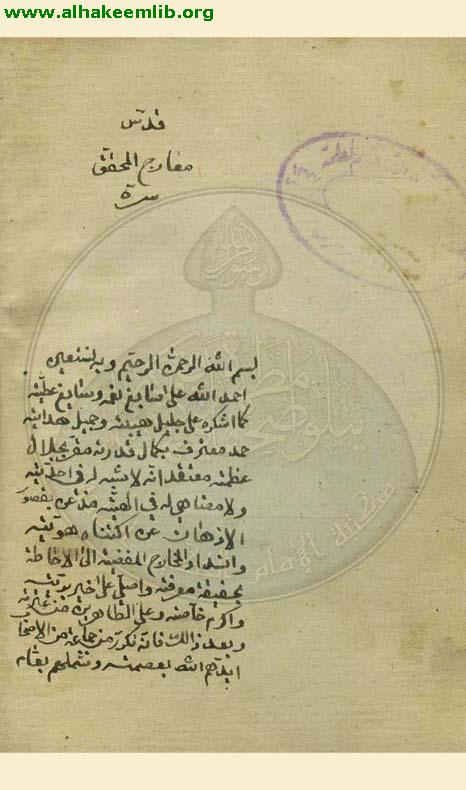 www.alhakeemlib.org
قدس
معارج المحقق
سره
بسم الله الرحمن الرحيم وبه نستعين
احمد الله على سابغ نعم وسايغ عطيته
كما اشكره على جليل هيبته وجميل هدايته
حمد معترف بكمال قدرته مقر بجلال
عظمته معتقد انه لا شبيه له في احديته
ولا مضاهي له في الهيته مذعن بقصور
الاذهان عن اكتناه هويته
وانسداد المخارج المفضية الى الاحاطة
بحقيقة معرفته واصلي على اخير بريته
واكرم خاصته وعلى الطاهرين من عترته
وبعد ذالك فانه تكرر من جماعة من الاصحاب
ايدهم الله بعصمته وشملهم بعام